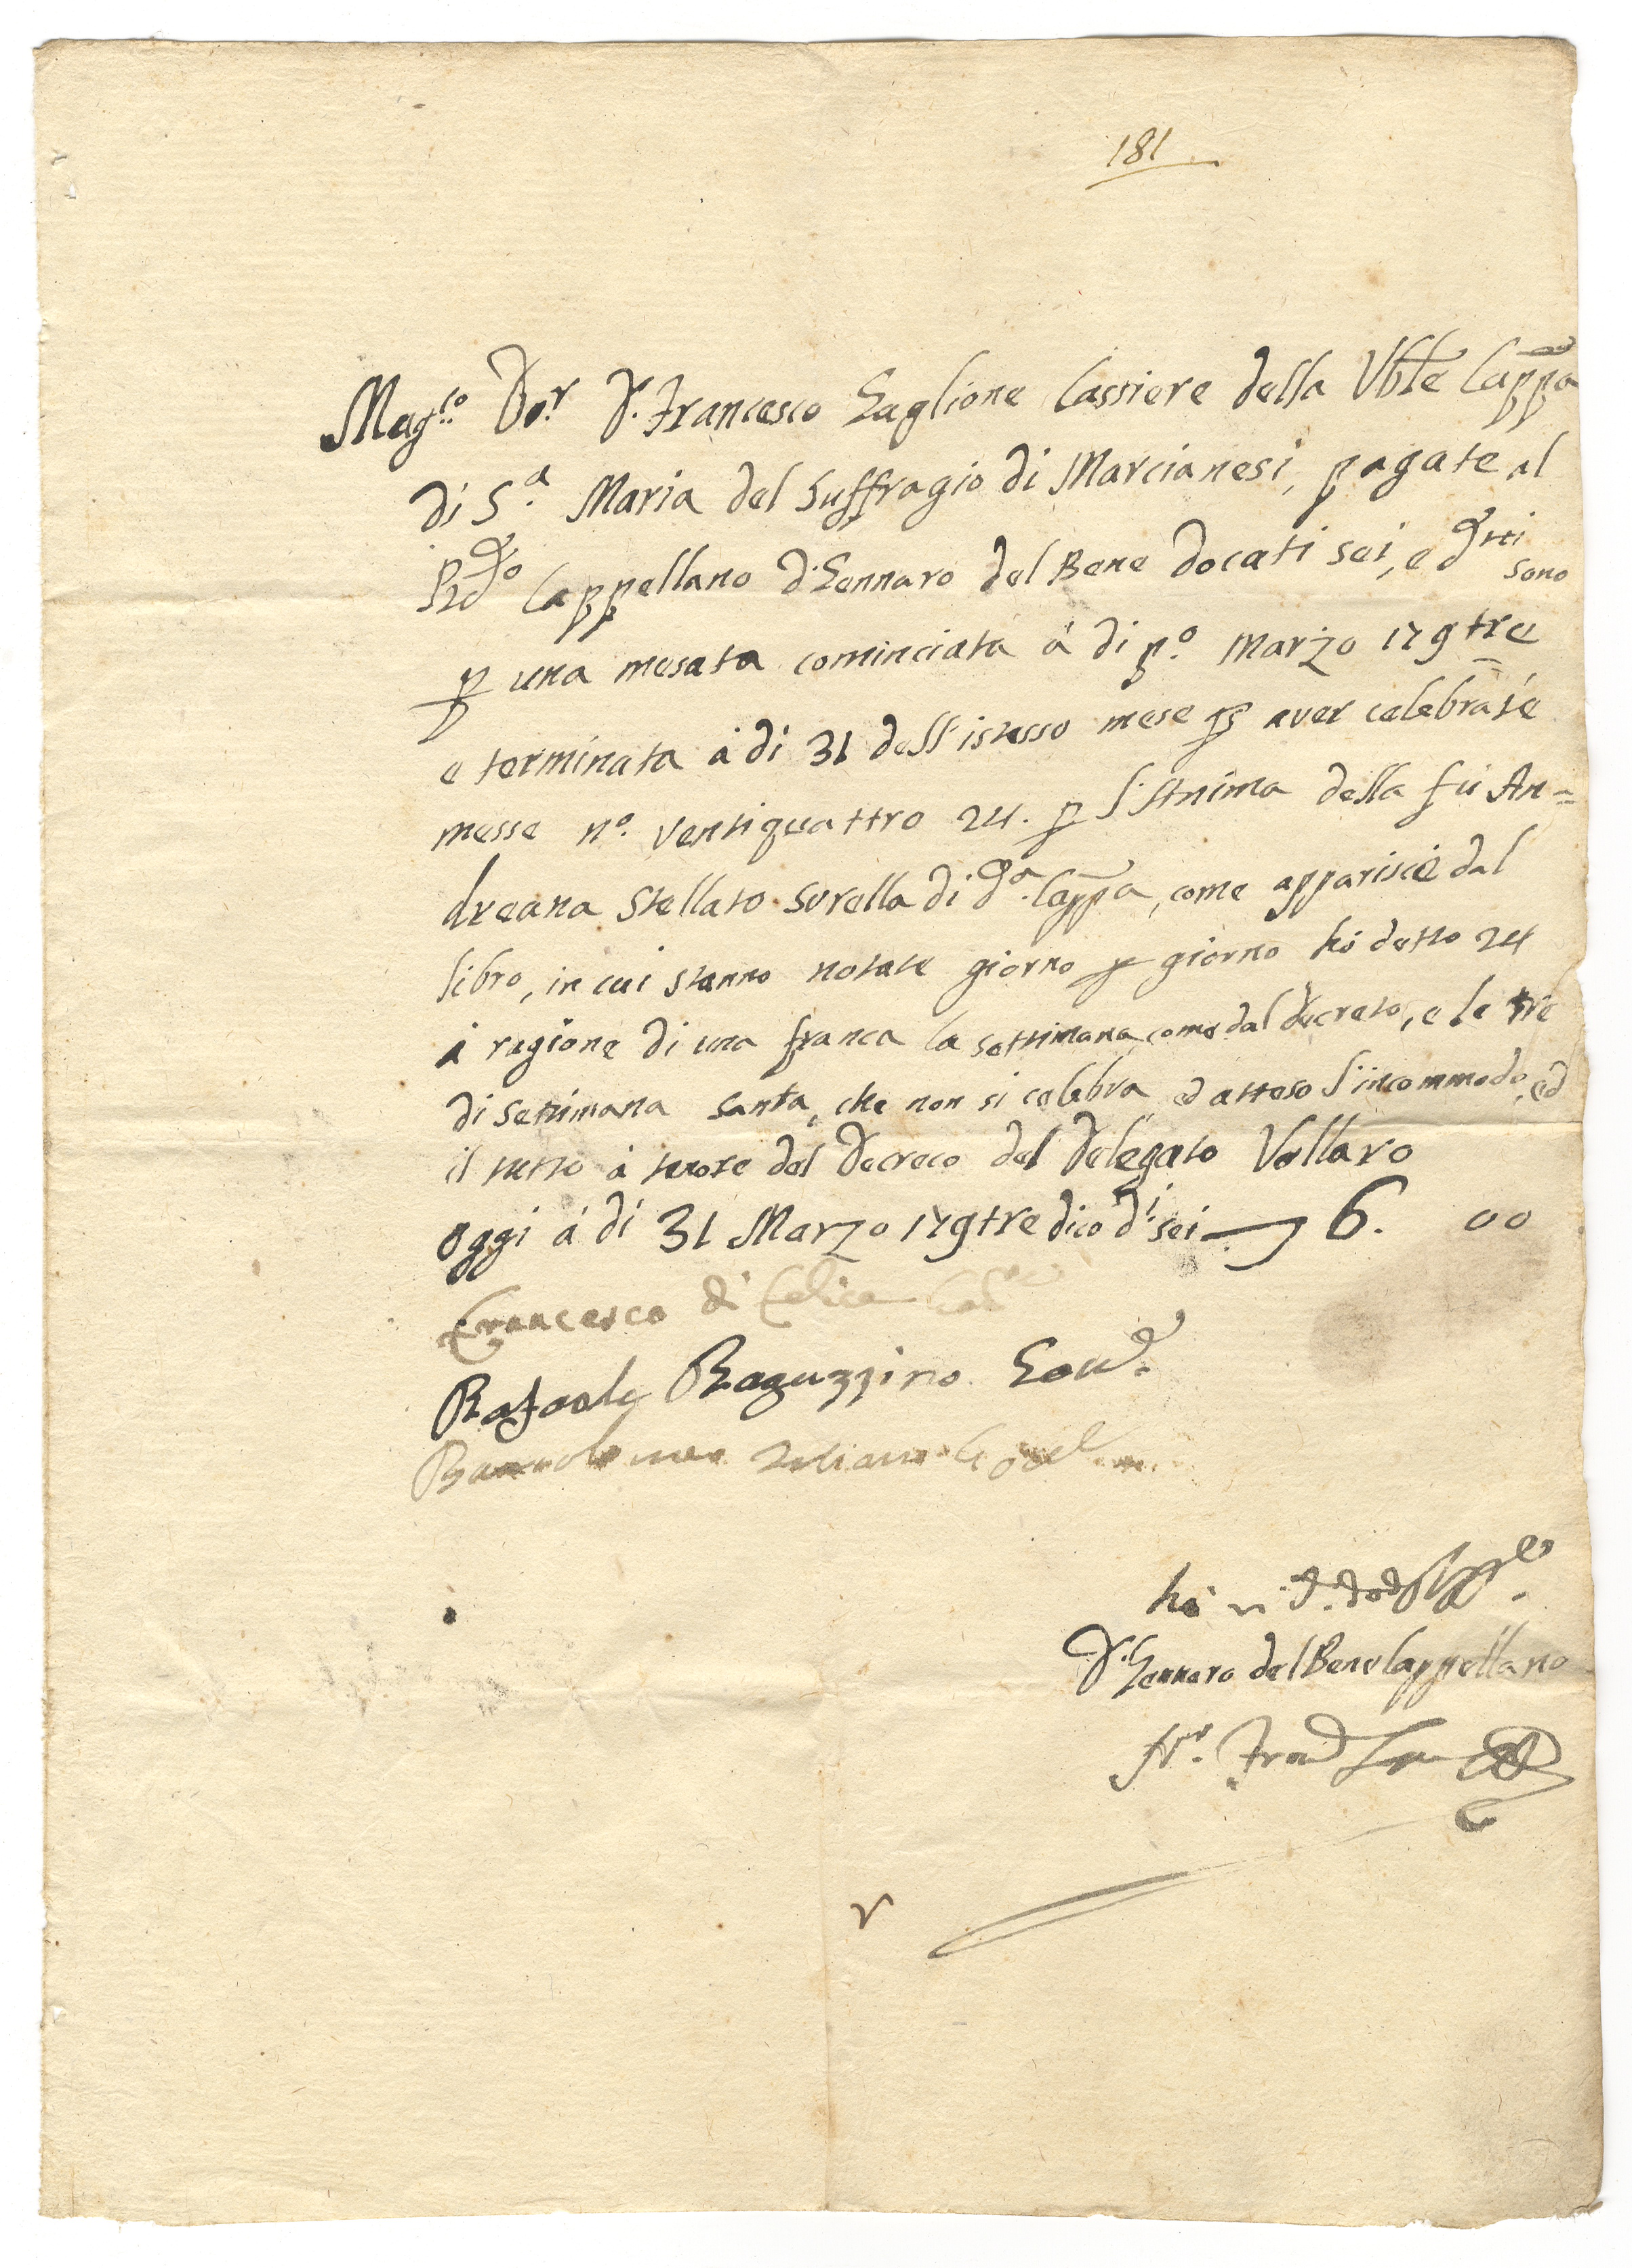 181
Mag.co Do.r D. Francesco Gaglione Cassiere della Vble Cappa
di S.a Maria del Suffragio di Marcianesi, pagate al
Rdo Cappellano D. Gennaro del Bene docati sei, e dtti sono
p una mesata cominciata à di p.o Marzo 179tre
e terminata à di 31 dell'istesso mese p aver celebrate
messe n.o ventiquattro 24. p l'Anima della fù An=
dreana Stellato sorella di d.a Cappa, come apparisce dal
libro, in cui stanno notate giorno p giorno hò detto 24
à ragione di una franca la settimana come dal decreto, e le tre
di settimana santa, che non si celebra ed atteso l'incommodo, ed
il tutto à tenore del Decreto del Delegato Vollaro
oggi à di 31 Marzo 179tre dico d.i sei 6. 00
Francesco di Felice
Rafaele Raguzzino Gov.e
hò
D. Gennaro del Bene Cappellano